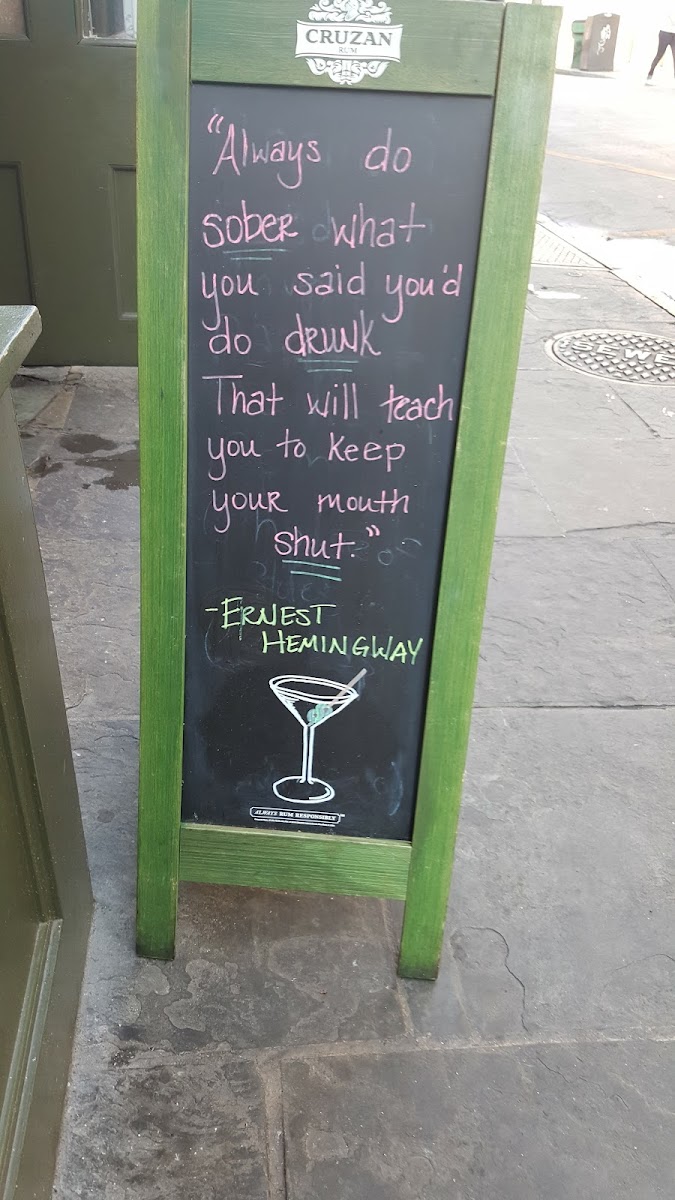 CRUZAN
RUM
"Always do
sober what
you said you'd
do drunk
That will teach
you to keep
your mouth
shut."
-ERNEST
HEMINGWAY
ALWAYS RUM RESPONSIBLY
SEWE